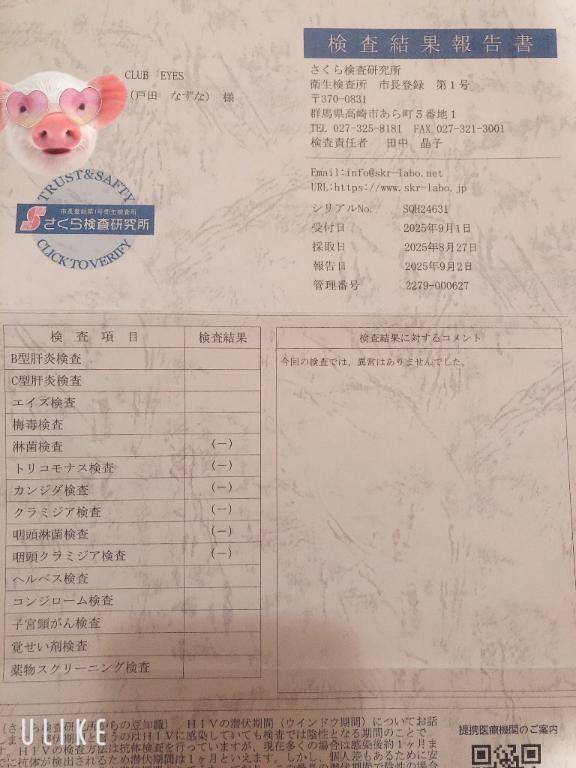 検査結果報告書
CLUB EYES
(戸田 なずな) 様
さくら検査研究所
衛生検査所 市長登録 第1号
〒370-0831
群馬県高崎市あら町5番地1
TEL 027-325-8181 FAX 027-321-3001
検査責任者 田中 晶子
Email:info@skr-labo.net
URL:https://www.skr-labo.jp
シリアルNo. SQH24631
受付日 2025年9月1日
採取日 2025年8月27日
報告日 2025年9月2日
管理番号 2279-000627
TRUST&SAFTY
市長登録第1号衛生検査所
さくら検査研究所
CLICK TO VERIFY
検査項目 検査結果
B型肝炎検査
C型肝炎検査
エイズ検査
梅毒検査
淋菌検査 (-)
トリコモナス検査 (-)
カンジダ検査 (-)
クラミジア検査 (-)
咽頭淋菌検査 (-)
咽頭クラミジア検査 (-)
ヘルペス検査
コンジローム検査
子宮頸がん検査
覚せい剤検査
薬物スクリーニング検査
検査結果に対するコメント
今回の検査では、異常はありませんでした。
の豆知識) HIVの潜伏期間(ウインドウ期間)についてお話
うのはHIVに感染していても検査では陰性となる期間のことで
HIVの検査方法は抗体検査を行っていますが、現在多くの場合は感染後約1ヶ月ま
でに抗体が検出されるため潜伏期間は1ヶ月といえます。しかし、個人差もあるために安
提携医療機関のご案内
ULIKE